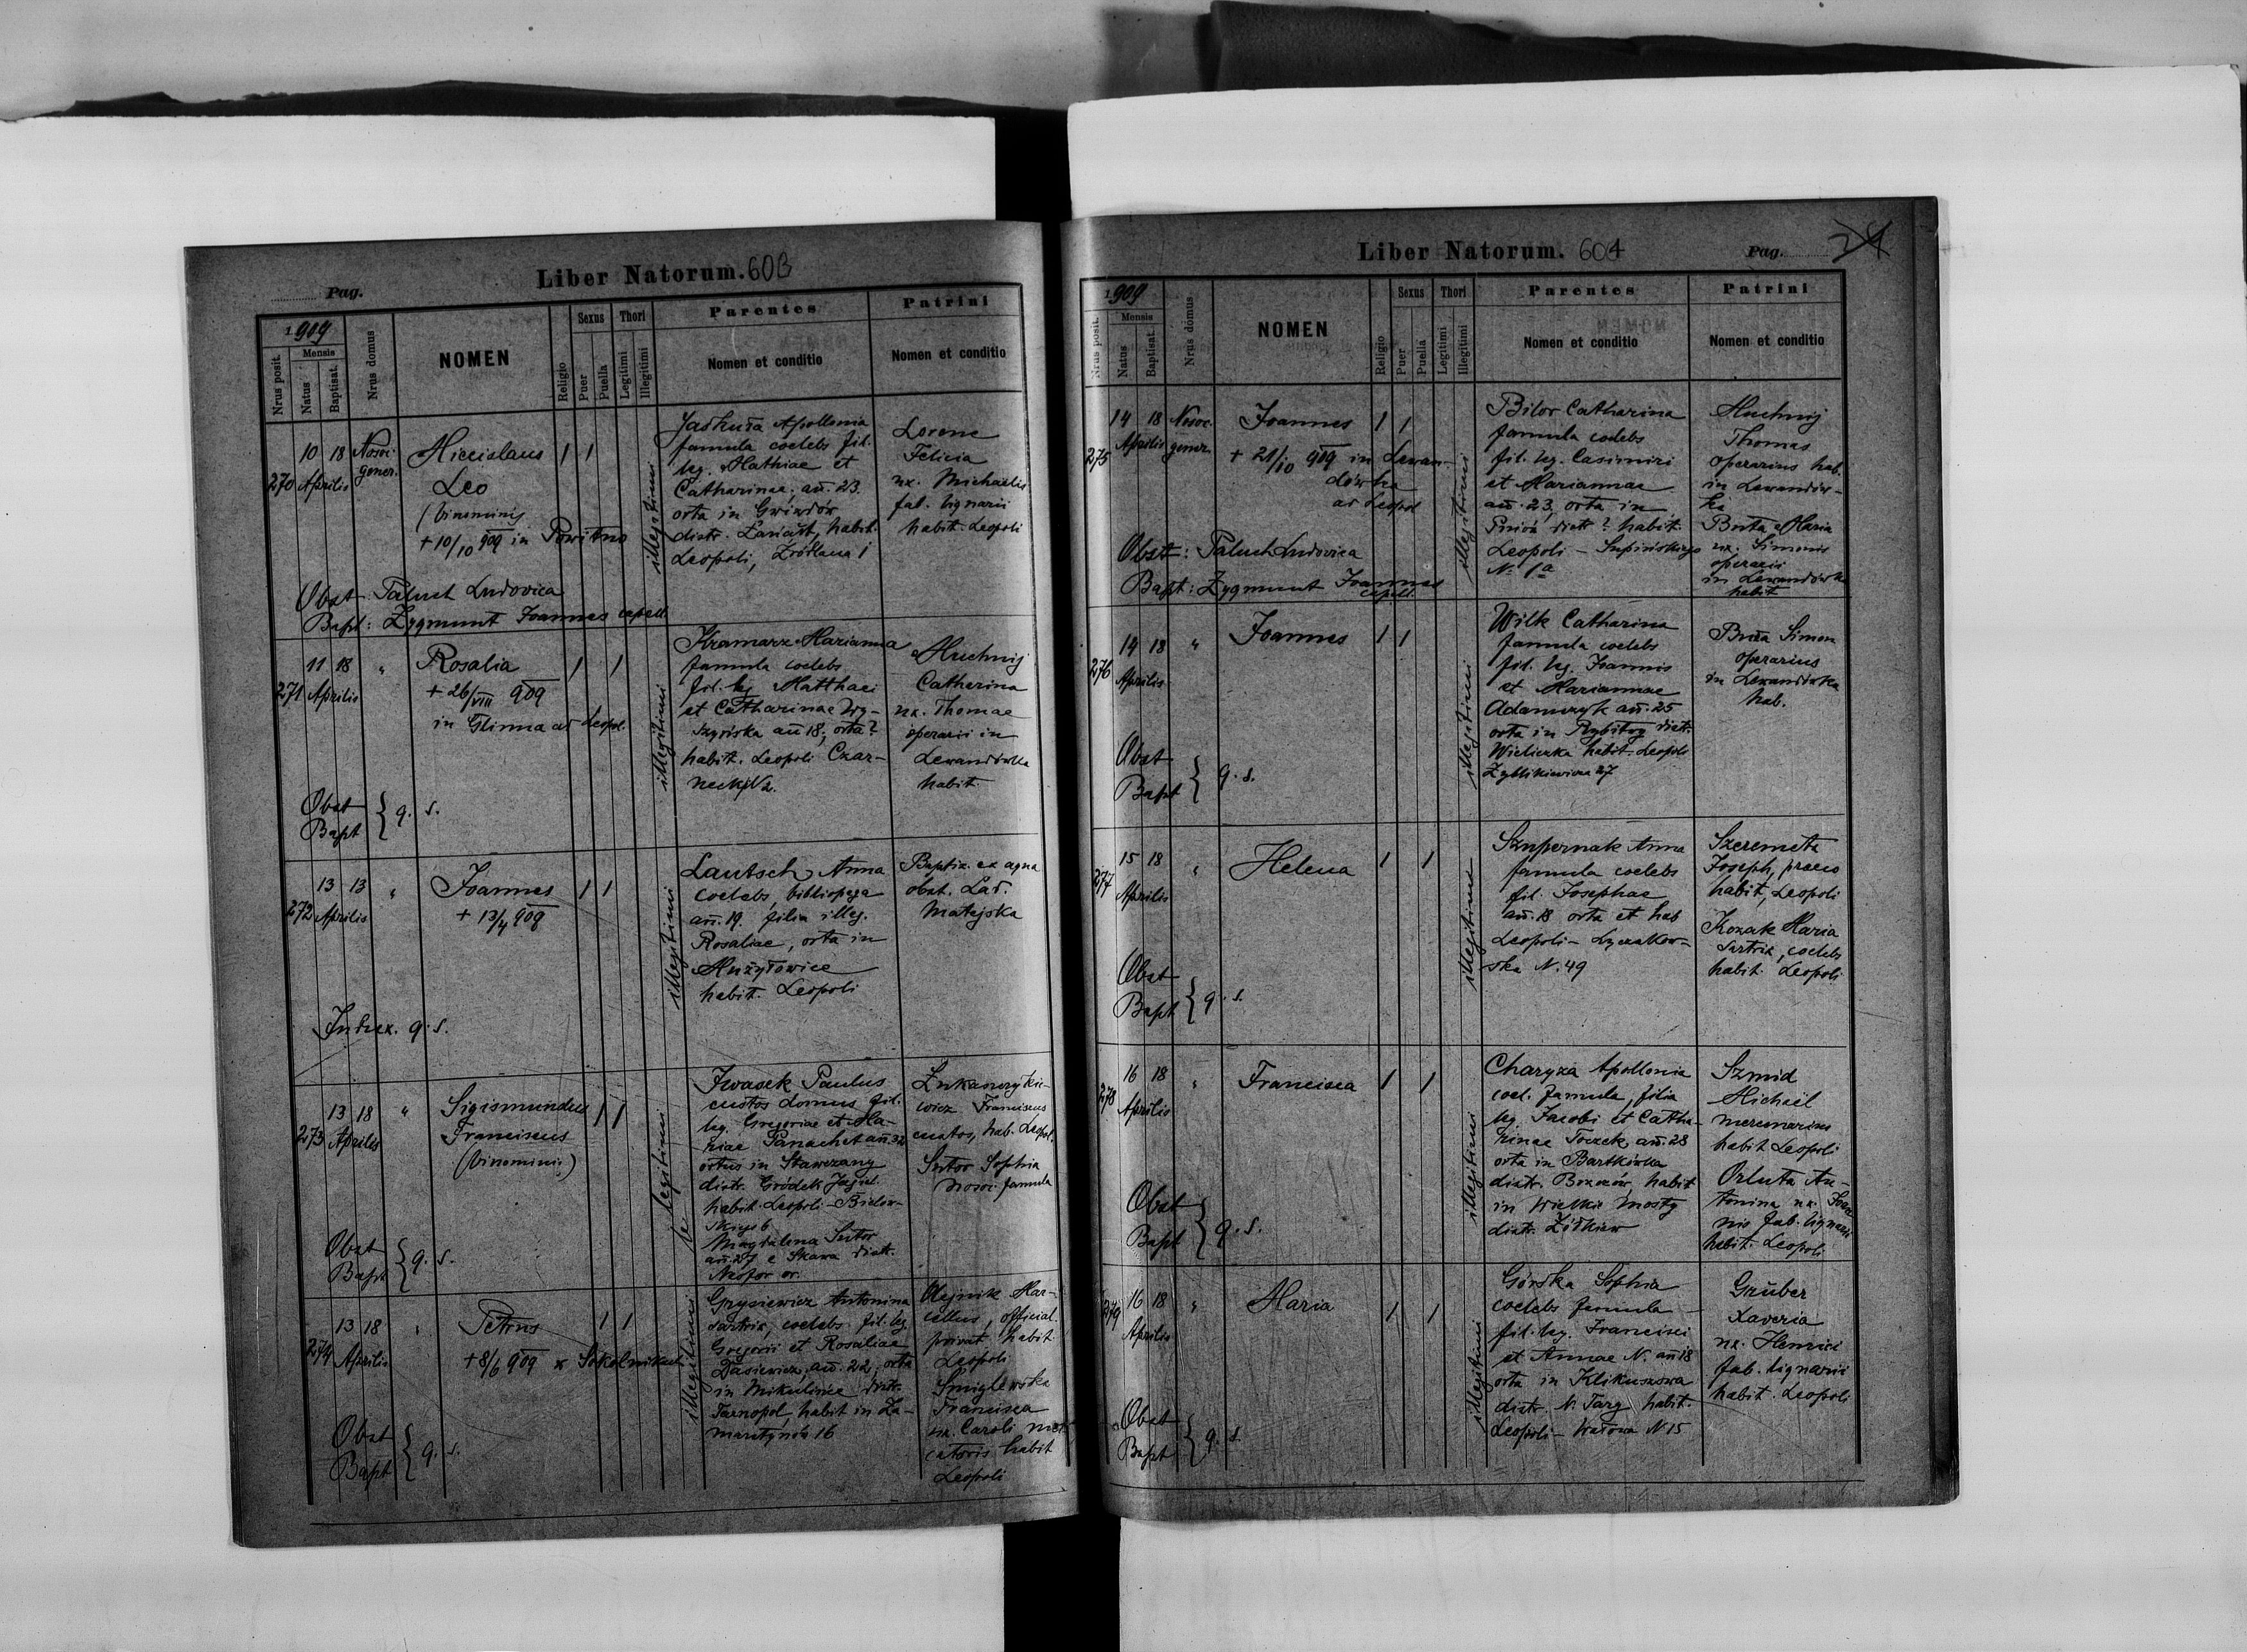 Pag.
Liber Natorum. 603
1909
Nrus posit.
Mensis
Natus
Baptisat.
Nrus domus
NOMEN
Religio
Sexus
Puer
Puella
Thori
Legitimi
Illegitimi
Parentes
Nomen et conditio
Patrini
Nomen et conditio
270
10 18 Nosoc.
Aprilis gener.
Miecislaus
Leo
(binominis)
+ 10/10 909 in Powitno
1 1
illegitimi
Apollonia
famula coelebs fil.
leg. Mathiae et
Catharinae, añ. 23.
orta in Gwizdów
distr. Łańcut, habit.
Leopoli, Źródlana 1
Lorenc
Felicia
ux. Michaelis
fab. lignarii
habit. Leopoli
Obst: Paluch Ludovica
Bapt: Zygmunt Joannes capell.
271
11 18 "
Aprilis
Rosalia
+ 26/VIII 909
in Glinna ad Leopol.
1 1
illegitimi
Kramarz Marianna
famula coelebs
fil. leg. Matthaei
et Catharinae Wy-
añ 18, orta?
habit. Leopoli Czar-
necki N 2.
Huchnij
Catharina
ux. Thomae
operarii in
Lewandówka
habit.
Obst
Bapt } q. s.
272
13 13 "
Aprilis
Joannes
+ 13/4 909
1 1
illegitimi
Lautsch Anna
coelebs, bibliopega
añ. 19. filia illeg.
Rosaliae, orta in
Mużyłowice
habit. Leopoli
Baptiz. ex aqua
obst. Lad.
Matejska
Index. q. s.
273
13 18 "
Aprilis
Sigismundus
Franciscus
(binominis)
1 1
illegitimi
Iwasek Paulus
custos domus fil.
leg. Gregoriae et Ma-
riae Panachet añ. 32
ortus in Stawczany
distr. Gródek Jagiel.
habit. Leopoli - Bielow-
skiego 6
Magdalena Sutor
añ. 27 e Skawa distr.
Łukaszczykie-
wicz Franciscus
custos, hab. Leopol.
Sutor Sophia
nosoc. famula
Obst
Bapt } q. s.
274
13 18 "
Aprilis
Petrus
+ 8/6 909 Sokolniki
1 1
illegitimi
Grysiewicz Antonina
sartrix, coelebs fil. leg.
Gregorii et Rosaliae
Dasiewicz, añ. 22, orta
in Mikulińce distr.
Tarnopol, habit in Za-
marstynów 16
Olejnik Mar-
cellus, official.
privat. habit.
Leopoli
Smiglewska
Francisca
ux. Caroli mer-
catoris habit
Leopoli
Obst
Bapt } q. s.
Liber Natorum. 604
Pag. 24
1909
Nrus posit.
Mensis
Natus
Baptisat.
Nrus domus
NOMEN
Religio
Sexus
Puer
Puella
Thori
Legitimi
Illegitimi
Parentes
Nomen et conditio
Patrini
Nomen et conditio
275
14 18 Nosoc.
Aprilis gener.
Joannes
+ 21/10 909 in Lewan-
dówka
ad Leopol
1 1
illegitimi
Bilor Catharina
famula coelebs
fil. leg. Casimiri
et Mariannae
añ. 23, orta in
distr? habit.
Leopoli - Supińskiego
N. 1a
Huchnij
Thomas
operarius hab.
in Lewandów-
ka
Maria
ux. Simonis
operarii
in Lewandówka
habit
Obst: Paluch Ludovica
Bapt: Zygmunt Joannes
capell.
276
14 18 "
Aprilis
Joannes
1 1
illegitimi
Wilk Catharina
famula coelebs
fil. leg. Joannis
et Mariannae
Adamczyk añ. 25
orta in Rybitwy distr.
Wieliczka habit. Leopoli
Zyblikiewicza 27
Simon
operarius
in Lewandówka
hab.
Obst
Bapt } q. s.
277
15 18 "
Aprilis
Helena
1 1
illegitimi
Szupernak Anna
famula coelebs
fil. Josephae
añ. 18 orta et hab
Leopoli - Łyczakow-
ska N. 49
Szeremeta
Joseph, praeco
habit. Leopoli
Kozak Maria
sartrix, coelebs
habit. Leopoli
Obst
Bapt } q. s.
278
16 18 "
Aprilis
Francisca
1 1
illegitimi
Charyza Apollonia
coel. famula, filia
leg. Jacobi et Catha-
rinae Toczek, añ. 28
orta in Bartkówka
distr. Brzozów, habit
in Wielkie Mosty
distr. Żółkiew
Szmid
Michaël
mercenarius
habit Leopoli
Orluta An-
tonina ux. Joan-
nis fab. lignarii
habit. Leopoli
Obst
Bapt } q. s.
279
16 18 "
Aprilis
Maria
1 1
illegitimi
Górska Sophia
coelebs famula
fil. leg. Francisci
et Annae N. añ 18
orta in Klikuszowa
distr. N. Targ habit.
Leopoli - N 15
Gruber
Xaveria
ux. Henrici
fab. lignarii
habit. Leopoli
Obst
Bapt } q. s.